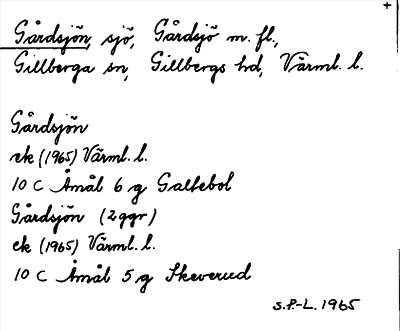 Gårdsjön, sjö, Gårdsjö m. fl.,
Gillberga sn, Gillbergs hd, Värml. l.
Gårdsjön
ek (1965) Värml. l.
10 C Åmål 6 g Galtebol
Gårdsjön (2 ggr)
ek (1965) Värml. l.
10 C Åmål 5 g Skeverud
S.P-L. 1965